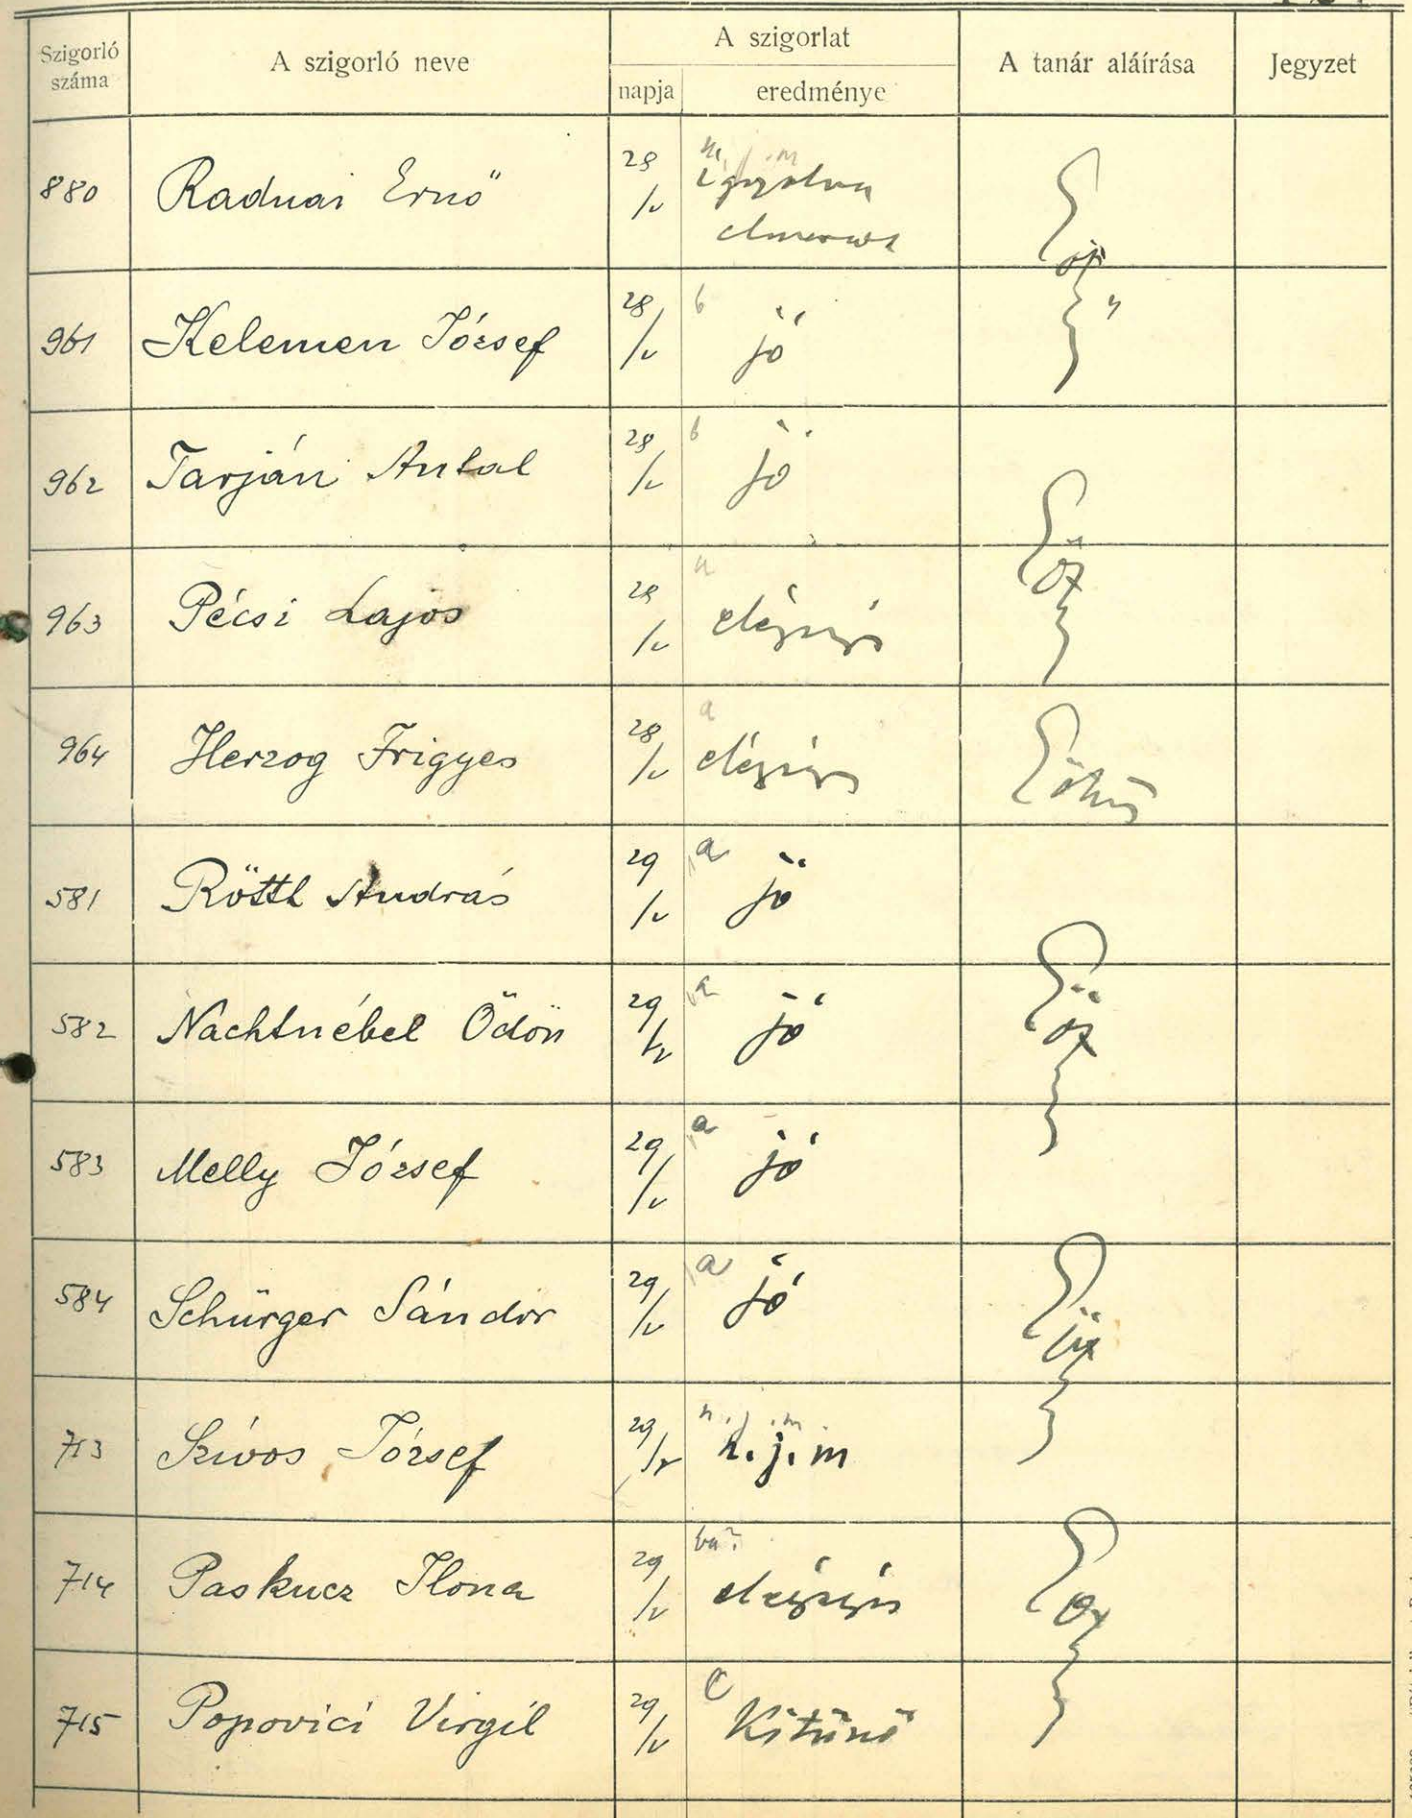 Szigorló száma
A szigorló neve
A szigorlat
napja
eredménye
A tanár aláírása
Jegyzet
880 Radnai Ernő 28/V n. j. m
961 Kelemen József 28/V b jó
962 Tarján Antal 28/V b jó
963 Pécsi Lajos 28/V a elégséges
964 Herzog Frigyes 28/V a elégséges
581 Röttl András 29/V a jó
582 Nachtnébel Ödön 29/V a jó
583 Melly József 29/V a jó
584 Schürger Sándor 29/V a jó
713 Szívos József 29/V n. j. m n. j. m
714 Paskucz Ilona 29/V elégséges
715 Popovici Virgil 29/V C Kitűnő